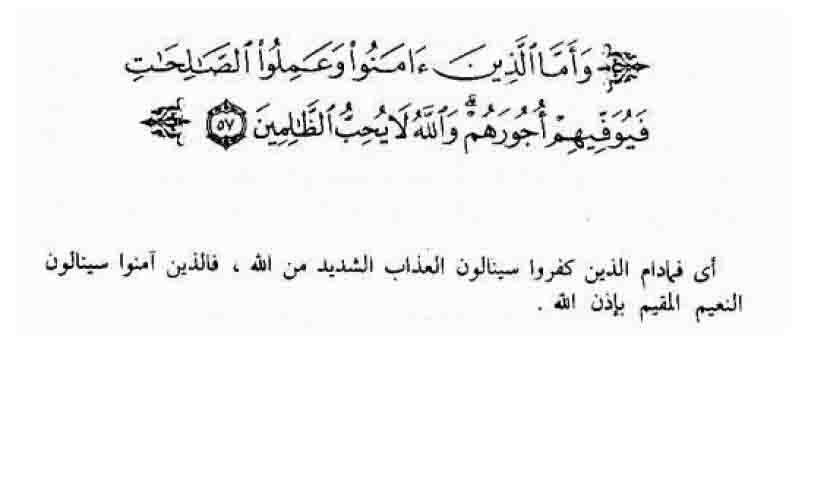 وَأَمَّا ٱلَّذِينَ ءَامَنُوا۟ وَعَمِلُوا۟ ٱلصَّٰلِحَٰتِ
فَيُوَفِّيهِمْ أُجُورَهُمْ ۗ وَٱللَّهُ لَا يُحِبُّ ٱلظَّٰلِمِينَ ٥٧
أى فمادام الذين كفروا سينالون العذاب الشديد من الله ، فالذين آمنوا سينالون
النعيم المقيم بإذن الله .